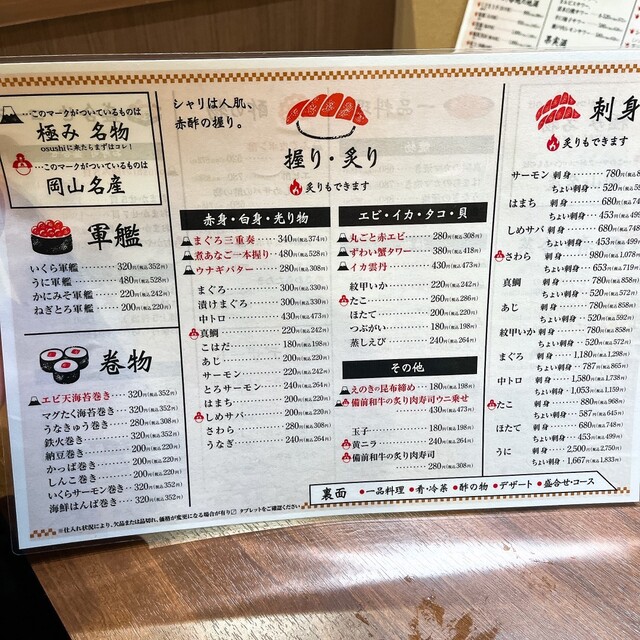 …このマークがついているものは
極み 名物
osushiに来たらまずはコレ!
…このマークがついているものは
岡山名産
軍艦
いくら軍艦 320円(税込352円)
うに軍艦 480円(税込528円)
かにみそ軍艦 220円(税込242円)
ねぎとろ軍艦 200円(税込220円)
巻物
エビ天海苔巻き 320円(税込352円)
マグたく海苔巻き 320円(税込352円)
うなきゅう巻き 280円(税込308円)
鉄火巻き 320円(税込352円)
納豆巻き 200円(税込220円)
かっぱ巻き 200円(税込220円)
しんこ巻き 200円(税込220円)
いくらサーモン巻き 320円(税込352円)
海鮮はんぱ巻き 320円(税込352円)
シャリは人肌、
赤酢の握り。
握り・炙り
炙りもできます
赤身・白身・光り物
まぐろ三重奏 340円(税込374円)
煮あなご一本握り 480円(税込528円)
ウナギバター 280円(税込308円)
まぐろ 300円(税込330円)
漬けまぐろ 300円(税込330円)
中トロ 430円(税込473円)
真鯛 220円(税込242円)
こはだ 180円(税込198円)
あじ 200円(税込220円)
サーモン 220円(税込242円)
とろサーモン 240円(税込264円)
はまち 200円(税込220円)
しめサバ 200円(税込220円)
さわら 280円(税込308円)
うなぎ 240円(税込264円)
エビ・イカ・タコ・貝
丸ごと赤エビ 280円(税込308円)
ずわい蟹タワー 380円(税込418円)
イカ雲丹 430円(税込473円)
紋甲いか 220円(税込242円)
たこ 260円(税込286円)
ほたて 200円(税込220円)
つぶがい 180円(税込198円)
蒸しえび 240円(税込264円)
その他
えのきの昆布締め 180円(税込198円)
備前和牛の炙り肉寿司ウニ乗せ
430円(税込473円)
玉子 180円(税込198円)
黄ニラ 240円(税込264円)
備前和牛の炙り肉寿司
280円(税込308円)
刺身
炙りもできます
サーモン 刺身 780円
ちょい刺身 520円
はまち 刺身 680円
ちょい刺身 453円
しめサバ 刺身 680円(税込748
ちょい刺身 453円(税込499
さわら 刺身 980円(税込1,078
ちょい刺身 653円(税込719円)
真鯛 刺身 780円(税込858円)
ちょい刺身 520円(税込572円)
あじ 刺身 780円(税込858円)
ちょい刺身 520円
紋甲いか 刺身 780円(税込858円)
ちょい刺身 520円(税込572円)
まぐろ 刺身 1,180円(税込1,298円)
ちょい刺身 787円(税込865円)
中トロ 刺身 1,580円(税込1,738円)
ちょい刺身 1,053円(税込1,159円)
たこ 刺身 880円(税込968円)
ちょい刺身 587円(税込645円)
ほたて 刺身 680円(税込748円)
ちょい刺身 453円(税込499円)
うに 刺身 2,500円(税込2,750円)
ちょい刺身 1,667円(税込1,833円)
裏面 ●一品料理 ●肴・冷菜 ●酢の物 ●デザート ●盛合せ・コース
※仕入れ状況により、欠品または品切れ、価格が変更になる場合が有り〼 タブレットをご確認ください
果実酒